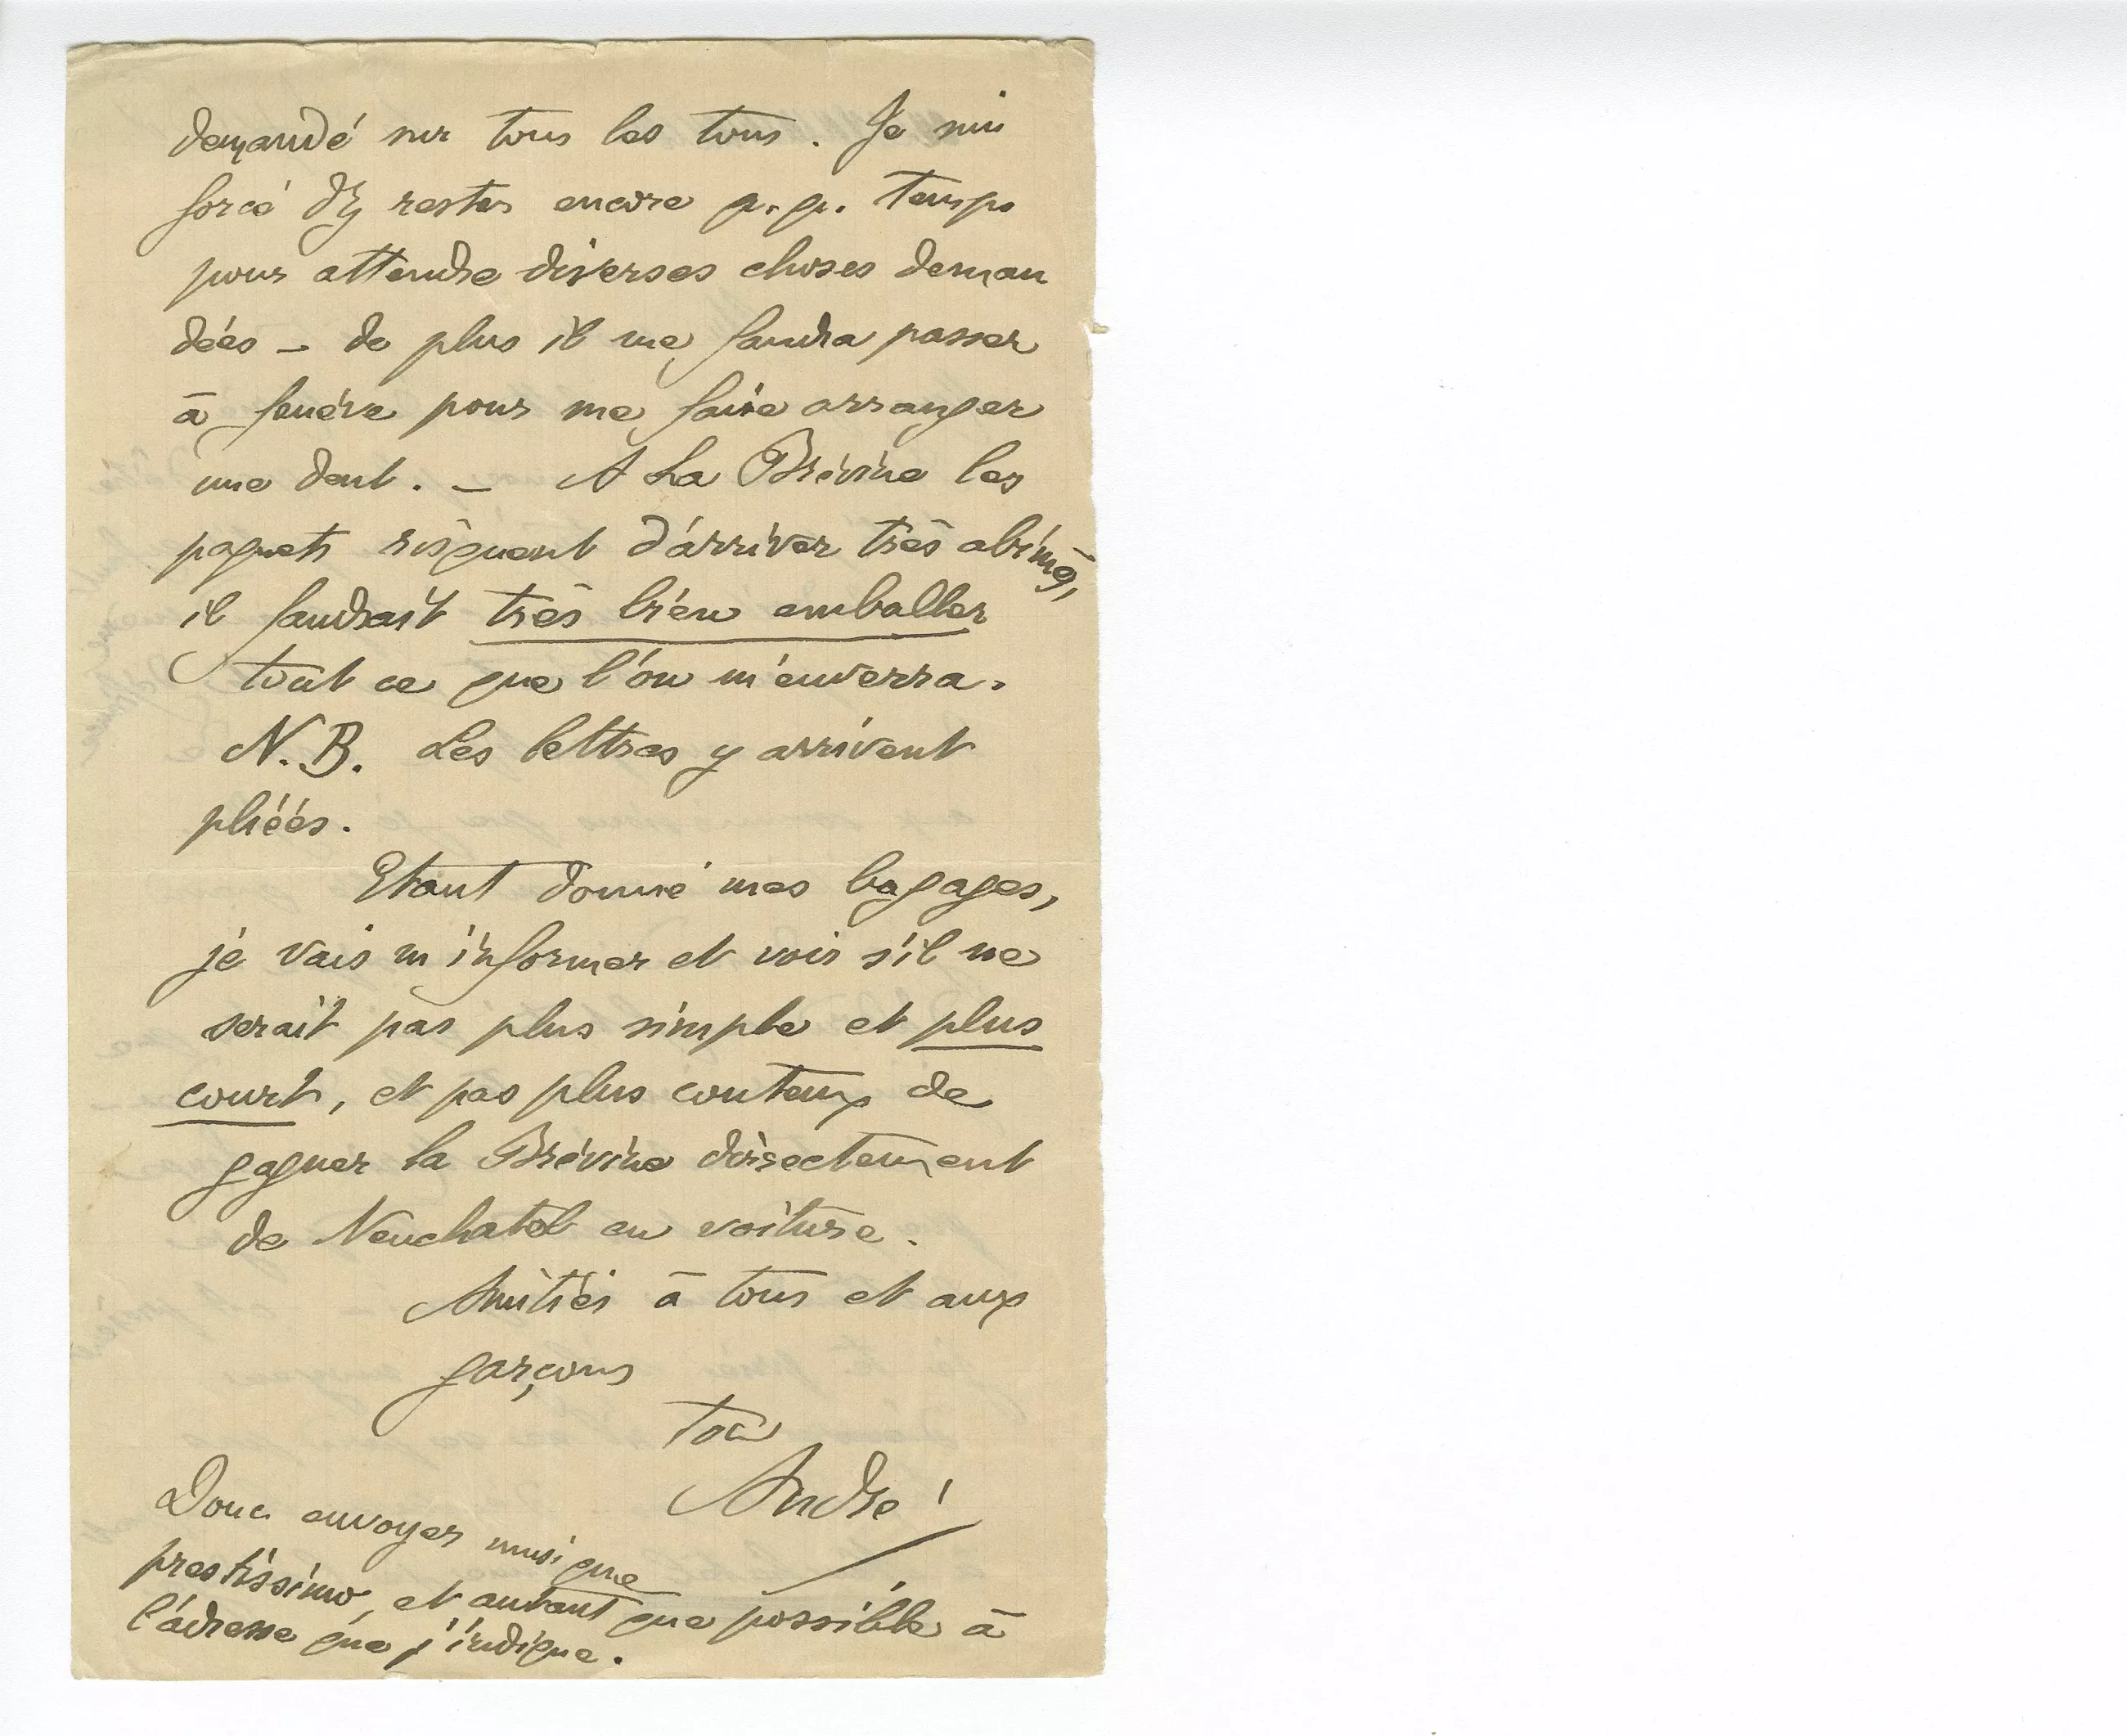 demandé sur tous les tons. Je suis
forcé d'y rester encore q.q. temps
pour attendre diverses choses deman
dées – de plus il me faudra passer
à Genève pour me faire arranger
une dent. – A La Brévine les
paquets risquent d'arriver très abimés,
il faudrait très bien emballer
tout ce que l'on m'enverra.
N.B. Les lettres y arrivent
pliées.
Etant donné mes bagages,
je vais m'informer et voir s'il ne
serait pas plus simple et plus
court, et pas plus couteux de
gagner la Brévine directement
de Neuchatel en voiture.
Amitiés à tous et aux
garçons
ton
André
Donc envoyer musique
prestissimo, et autant que possible à
l'adresse que j'indique.